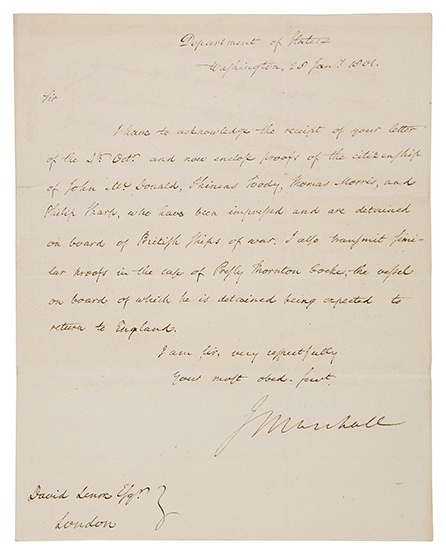 Department of State
Washington, 28 Jany. 1801.
Sir
I have to acknowledge the receipt of your letter
of the 2d. Octr. and now enclose proofs of the citizenship
of John Mc Donald, Phineas Toody, Thomas Morris, and
Philip Sharp, who have been impressed and are detained
on board of British Ships of war. I also transmit simi-
lar proofs in the case of Presly Thornton Cocke, the vessel
on board of which he is detained being expected to
return to England.
I am Sir, very respectfully
Your most obed. servt.
J Marshall
David Lenox Esqr.
London